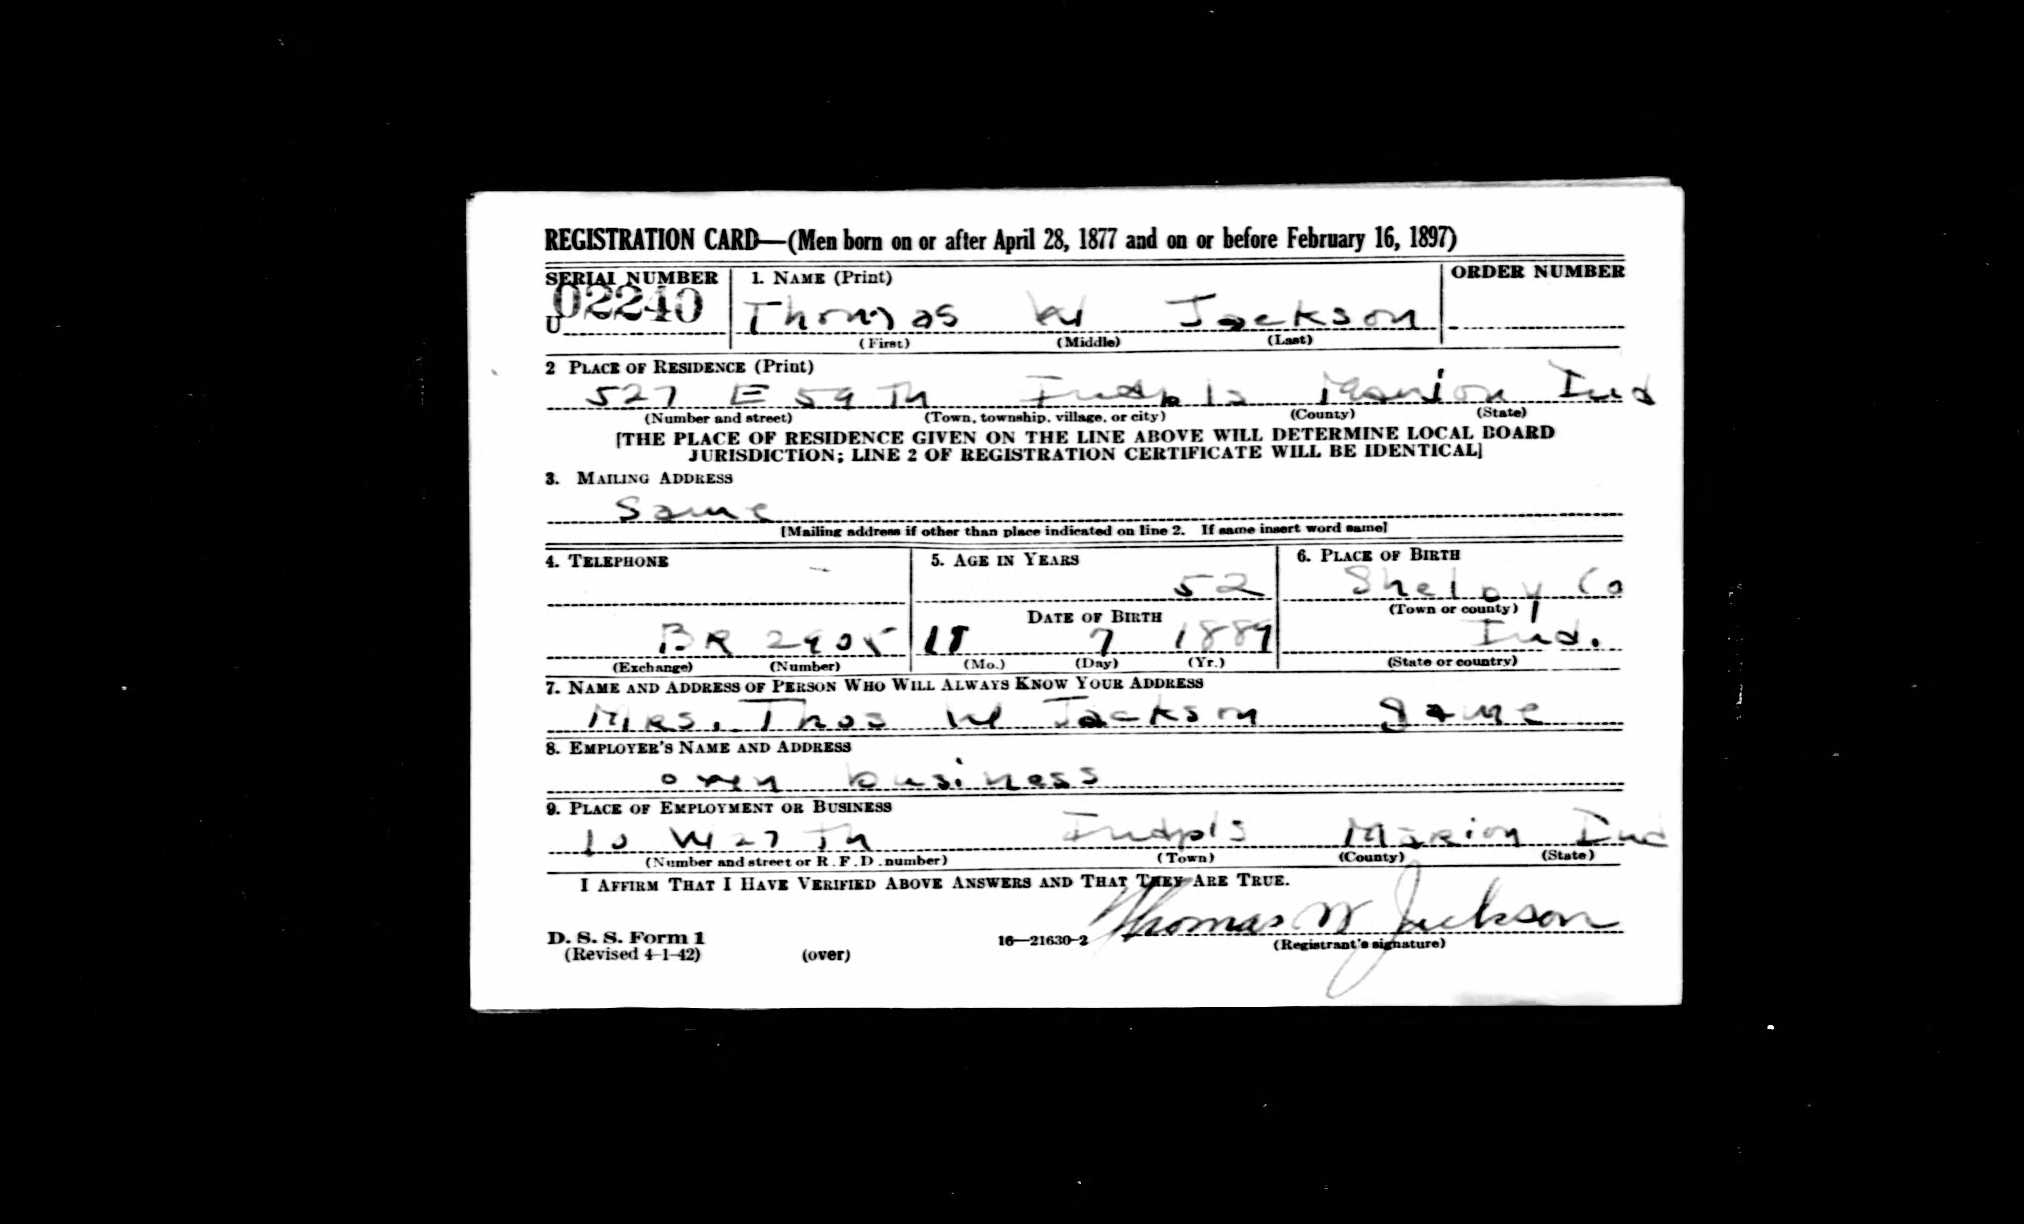 REGISTRATION CARD—(Men born on or after April 28, 1877 and on or before February 16, 1897)
SERIAL NUMBER 1. NAME (Print) ORDER NUMBER
U 02240 Thomas W Jackson
(First) (Middle) (Last)
2 PLACE OF RESIDENCE (Print)
527 E 59 Th Indpls Marion Ind
(Number and street) (Town, township, village, or city) (County) (State)
[THE PLACE OF RESIDENCE GIVEN ON THE LINE ABOVE WILL DETERMINE LOCAL BOARD
JURISDICTION; LINE 2 OF REGISTRATION CERTIFICATE WILL BE IDENTICAL]
3. MAILING ADDRESS
Same
[Mailing address if other than place indicated on line 2. If same insert word same]
4. TELEPHONE 5. AGE IN YEARS 6. PLACE OF BIRTH
52 Shelby Co
DATE OF BIRTH (Town or county)
BR 2905 7 1889 Ind.
(Exchange) (Number) (Mo.) (Day) (Yr.) (State or country)
7. NAME AND ADDRESS OF PERSON WHO WILL ALWAYS KNOW YOUR ADDRESS
Mrs. Thos W Jackson Same
8. EMPLOYER'S NAME AND ADDRESS
own business
9. PLACE OF EMPLOYMENT OR BUSINESS
10 W 27 Th Indpls Marion Ind
(Number and street or R. F. D. number) (Town) (County) (State)
I AFFIRM THAT I HAVE VERIFIED ABOVE ANSWERS AND THAT THEY ARE TRUE.
Thomas W Jackson
D. S. S. Form 1 16—21630-2 (Registrant's signature)
(Revised 4-1-42) (over)